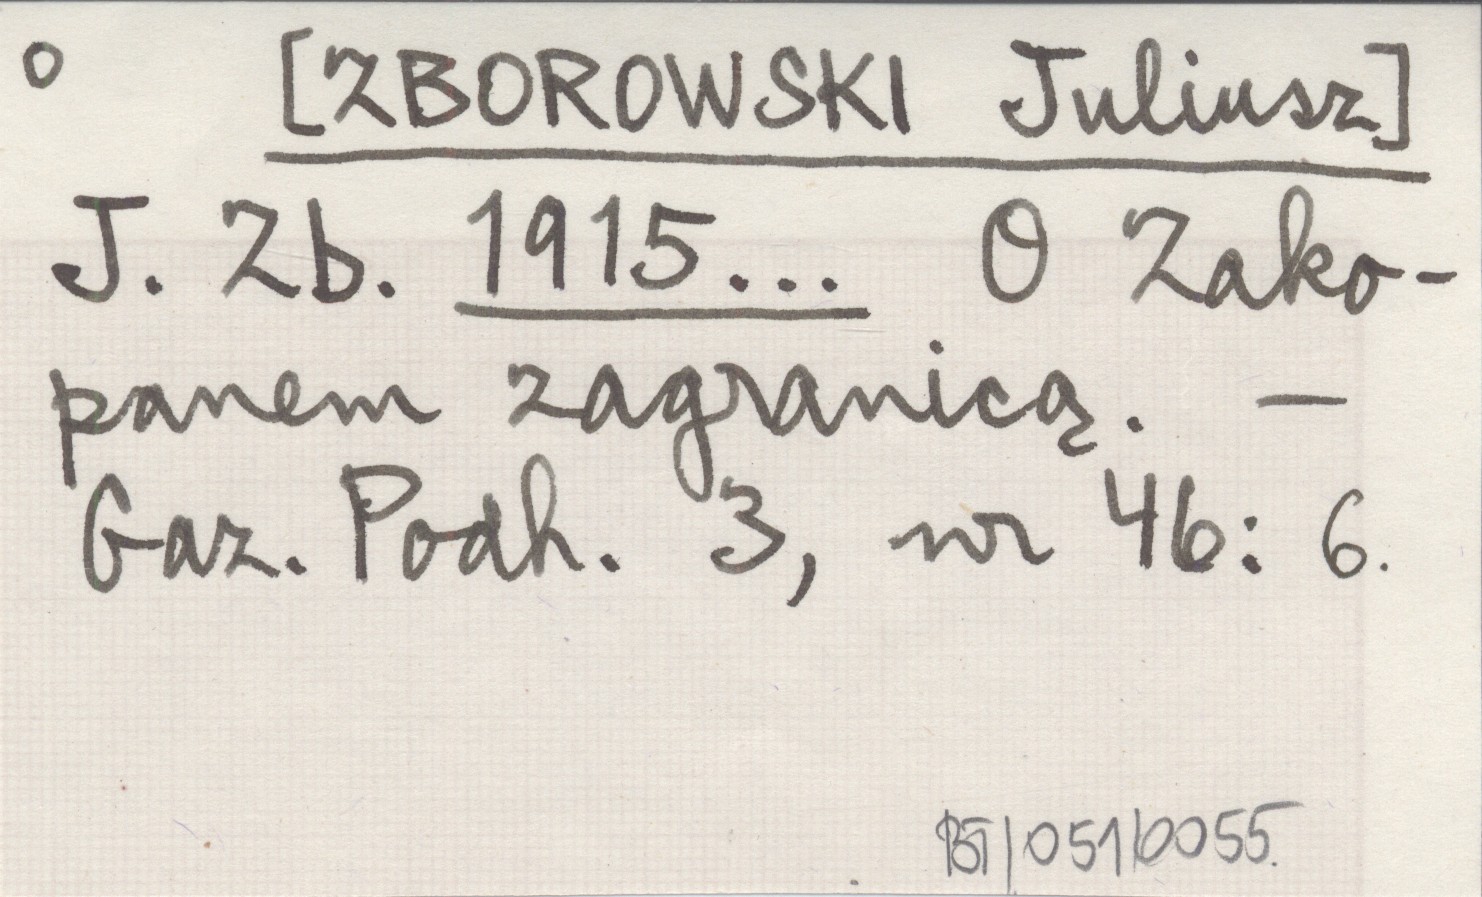 o [ZBOROWSKI Juliusz]
J. Zb. 1915... O Zako-
panem zagranicą. —
Gaz. Podh. 3, nr 46: 6.
BT/051/0055